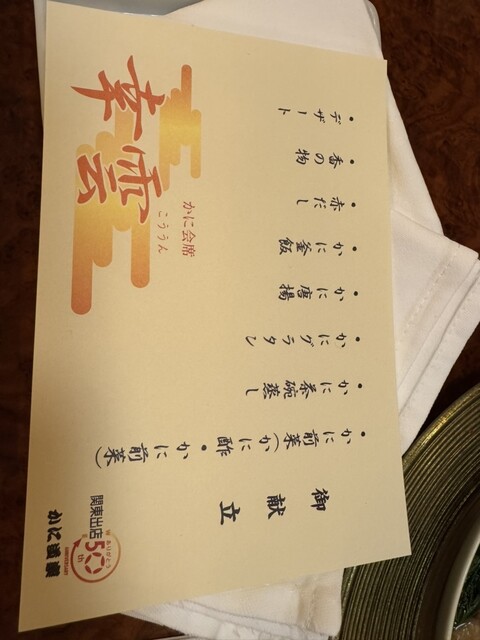 御献立
・かに前菜(かに酢・かに前菜)
・かに茶碗蒸し
・かにグラタン
・かに唐揚
・かに釜飯
・赤だし
・香の物
・デザート
かに会席
こううん
幸雲
ありがとう
50th
ANNIVERSARY
関東出店
かに道楽